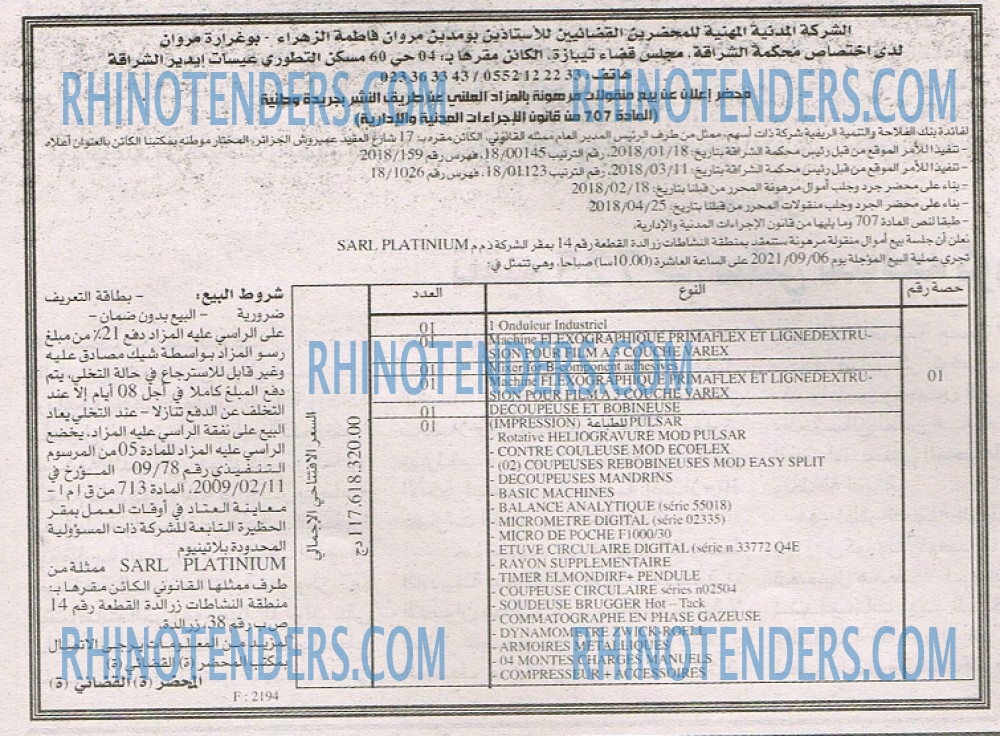 الشركة المدنية المهنية للمحضرين القضائيين للأستاذين بومدين مروان فاطمة الزهراء - بوغرارة مروان
لدى اختصاص محكمة الشراقة، مجلس قضاء تيبازة، الكائن مقرها بـ: 04 حي 60 مسكن التطوري عيسات إيدير الشراقة
هاتف: 0552 12 22 33 / 023 36 33 43
محضر إعلان عن بيع منقولات مرهونة بالمزاد العلني عن طريق النشر بجريدة وطنية
(المادة 707 من قانون الإجراءات المدنية والإدارية)
لفائدة بنك الفلاحة والتنمية الريفية شركة ذات أسهم، ممثل من طرف الرئيس المدير العام ممثله القانوني، الكائن مقره بـ 17 شارع العقيد عميروش الجزائر، المختار موطنه بمكتبنا الكائن بالعنوان أعلاه
- تنفيذا للأمر الموقع من قبل رئيس محكمة الشراقة بتاريخ: 2018/01/18، رقم الترتيب 18/00145، فهرس رقم 2018/159
- تنفيذا للأمر الموقع من قبل رئيس محكمة الشراقة بتاريخ: 2018/03/11، رقم الترتيب 18/01123، فهرس رقم 18/1026
- بناء على محضر جرد وجلب أموال مرهونة المحرر من قبلنا بتاريخ: 2018/02/18
- بناء على محضر الجرد وجلب منقولات المحرر من قبلنا بتاريخ: 2018/04/25
- طبقا لنص المادة 707 وما يليها من قانون الإجراءات المدنية والإدارية.
نعلن أن جلسة بيع أموال منقولة مرهونة ستنعقد بمنطقة النشاطات زرالدة القطعة رقم 14 بمقر الشركة ذ م م SARL PLATINIUM
تجرى عملية البيع المؤجلة يوم 2021/09/06 على الساعة العاشرة (10.00سا) صباحا، وهي تتمثل في:
حصة رقم
النوع
العدد
01
1 Onduleur Industriel
01
Machine FLEXOGRAPHIQUE PRIMAFLEX ET LIGNEDEXTRU-
SION POUR FILM A 3 COUCHE VAREX
01
Mixer for B-component adhesives
01
Machine FLEXOGRAPHIQUE PRIMAFLEX ET LIGNEDEXTRU-
SION POUR FILM A 3 COUCHE VAREX
01
01
DECOUPEUSE ET BOBINEUSE
01
(IMPRESSION) للطباعة PULSAR
01
- Rotative HELIOGRAVURE MOD PULSAR
- CONTRE COULEUSE MOD ECOFLEX
- (02) COUPEUSES REBOBINEUSES MOD EASY SPLIT
- DECOUPEUSES MANDRINS
- BASIC MACHINES
- BALANCE ANALYTIQUE (série 55018)
- MICROMETRE DIGITAL (série 02335)
- MICRO DE POCHE F1000/30
- ETUVE CIRCULAIRE DIGITAL (série n 33772 Q4E
- RAYON SUPPLEMENTAIRE
- TIMER ELMONDIRF+ PENDULE
- COUPEUSE CIRCULAIRE séries n02504
- SOUDEUSE BRUGGER Hot – Tack
- COMMATOGRAPHE EN PHASE GAZEUSE
- DYNAMOMETRE ZWICK-ROELL
- ARMOIRES METALLIQUES
- 04 MONTES CHARGES MANUELS
- COMPRESSEUR + ACCESSOIRES
السعر الافتتاحي الإجمالي
117.618.320.00 دج
شروط البيع: - بطاقة التعريف
ضرورية - البيع بدون ضمان -
على الراسي عليه المزاد دفع 21٪ من مبلغ
رسو المزاد بواسطة شيك مصادق عليه
وغير قابل للاسترجاع في حالة التخلي، يتم
دفع المبلغ كاملا في أجل 08 أيام إلا عند
التخلف عن الدفع تنازلا - عند التخلي يعاد
البيع على نفقة الراسي عليه المزاد، يخضع
الراسي عليه المزاد للمادة 05 من المرسوم
التنفيذي رقم 09/78 المؤرخ في
2009/02/11، المادة 713 من ق إ م إ -
معاينة العتاد في أوقات العمل بمقر
الحظيرة التابعة للشركة ذات المسؤولية
المحدودة بلاتينيوم
SARL PLATINIUM ممثلة من
طرف ممثلها القانوني الكائن مقرها بـ:
منطقة النشاطات زرالدة القطعة رقم 14
ص ب رقم 38، زرالدة.
لمزيد من المعلومات يرجى الاتصال
بمكتب المحضر (ة) القضائي (ة)
المحضر (ة) القضائي (ة)
F : 2194
RHINOTENDERS.COM
RHINOTENDERS.COM
RHINOTENDERS.COM
RHINOTENDERS.COM
RHINOTENDERS.COM